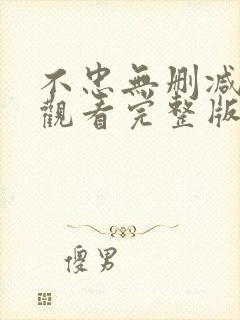 不忠無刪減
觀看完整版
傻男